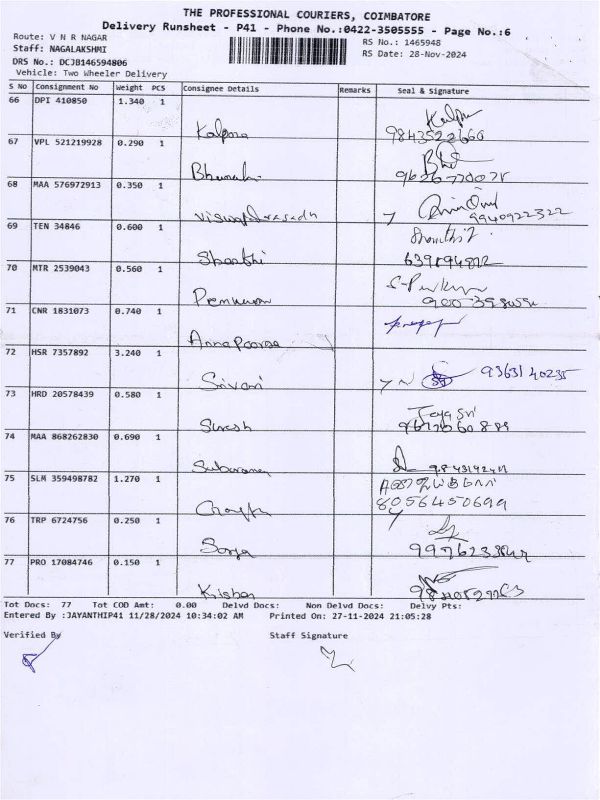 THE PROFESSIONAL COURIERS, COIMBATORE
Delivery Runsheet - P41 - Phone No.:0422-3505555 - Page No.:6
Route: V N R NAGAR
RS No.: 1465948
Staff: NAGALAKSHMI
RS Date: 28-Nov-2024
DRS No.: DCJB146594806
Vehicle: Two Wheeler Delivery
S No Consignment No Weight PCS Consignee Details Remarks Seal & Signature
66 DPI 410850 1.340 1
Kalpana
9843522660
67 VPL 521219928 0.290 1
68 MAA 576972913 0.350 1
9940922322
69 TEN 34846 0.600 1
Shanthi
70 MTR 2539043 0.560 1
Premkumar
71 CNR 1831073 0.740 1
Annapoorna
72 HSR 7357892 3.240 1
9363140235
Srivari
73 HRD 20578439 0.580 1
Jaya Sri
Suresh
74 MAA 868262830 0.690 1
75 SLM 359498782 1.270 1
8056450699
76 TRP 6724756 0.250 1
Sorya
77 PRO 17084746 0.150 1
Kishor
Tot Docs: 77 Tot COD Amt: 0.00 Delvd Docs: Non Delvd Docs: Delvy Pts:
Entered By :JAYANTHIP41 11/28/2024 10:34:02 AM Printed On: 27-11-2024 21:05:28
Verified By Staff Signature